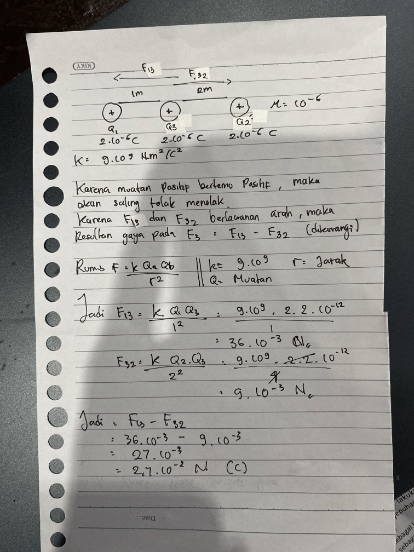 KIKY
F13
F32
1m 2m
+ + + M = 10^-6
Q1 Q3 Q2
2.10^-6 C 2.10^-6 C 2.10^-6 C
K = 9.10^9 Nm^2/C^2
Karena muatan Positif bertemu Positif, maka
akan saling tolak menolak.
Karena F13 dan F32 berlawanan arah, maka
Resultan gaya pada F3 = F13 - F32 (dikurangi)
Rumus F = k Qa Qb / r^2 || k = 9.10^9 r = Jarak
Q = Muatan
Jadi F13 = k Q1 Q3 / 1^2 = 9.10^9 . 2.2.10^-12 / 1
= 36.10^-3 N
F32 = k Q2.Q3 / 2^2 = 9.10^9 . 2.2.10^-12 / 4
= 9.10^-3 N
Jadi = F13 - F32
= 36.10^-3 - 9.10^-3
= 27.10^-3
= 2,7.10^-2 N (C)